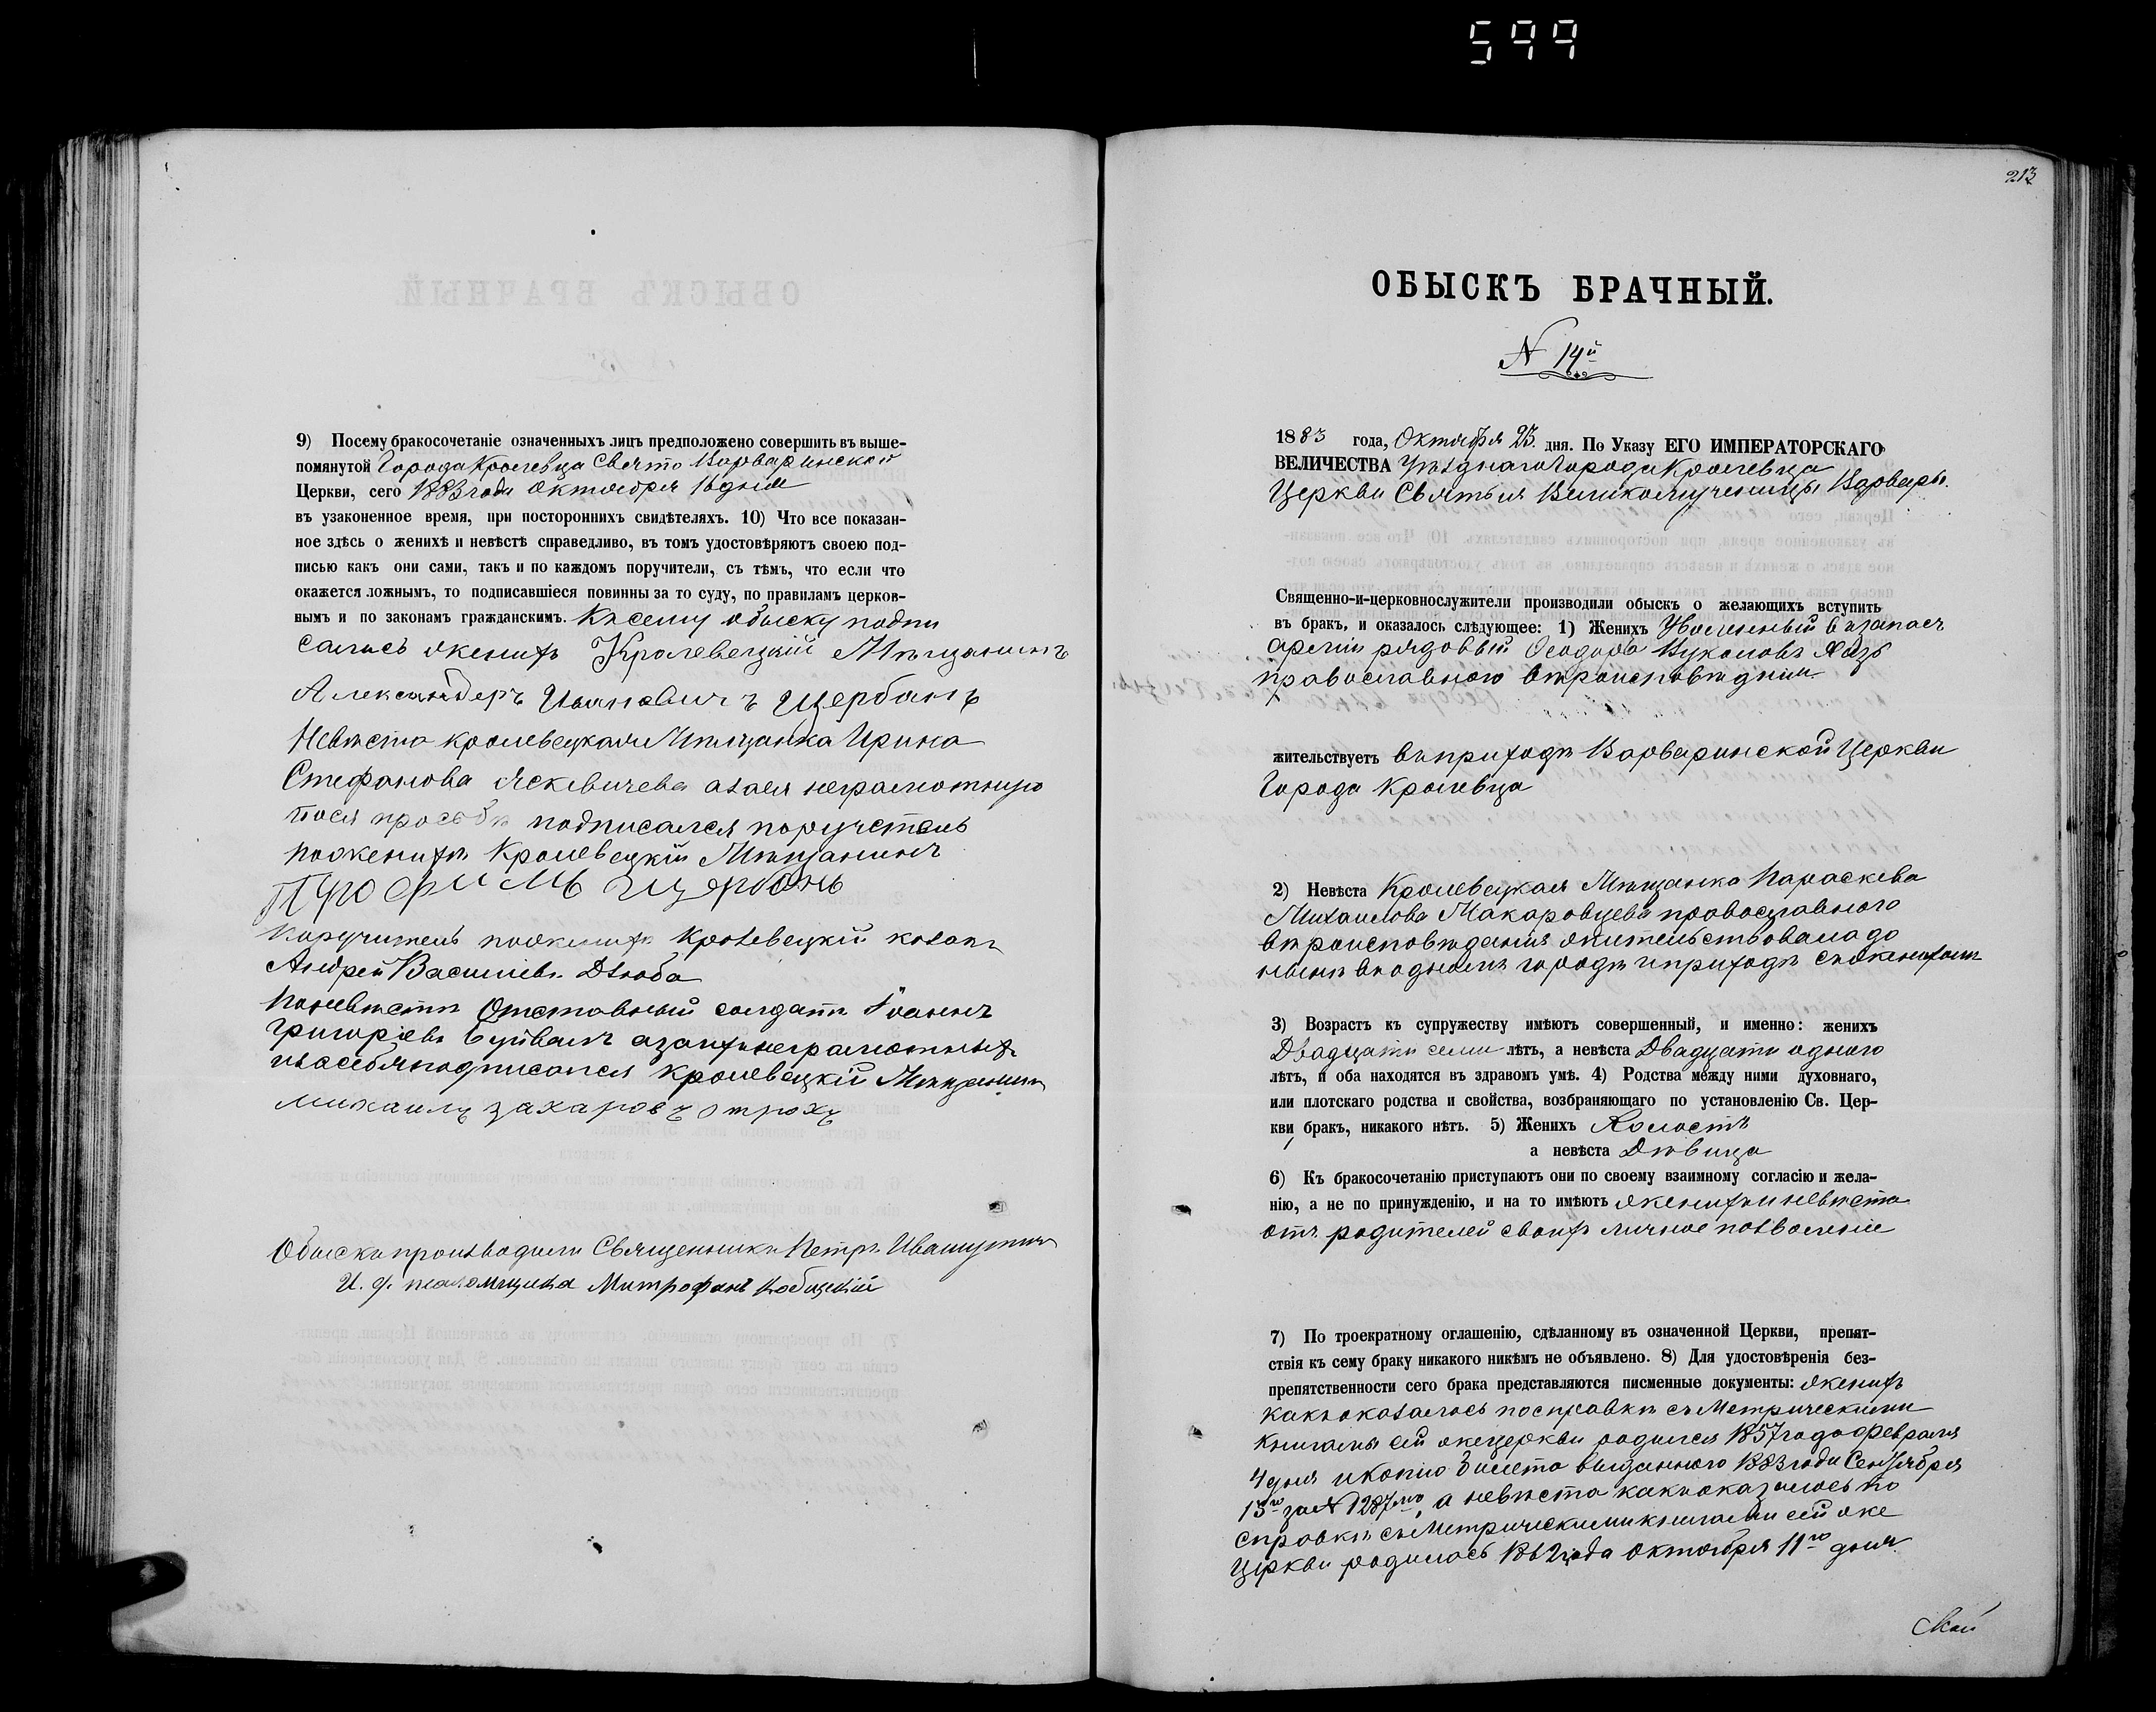 599
9) Посему бракосочетаніе означенныхъ лицъ предположено совершить въ выше-
помянутой Города Кролевца Свято Варваринской
Церкви, сего 1883 года Октября 16 дня
въ узаконенное время, при постороннихъ свидѣтеляхъ. 10) Что все показан-
ное здѣсь о женихѣ и невѣстѣ справедливо, въ томъ удостовѣряютъ своею под-
писью какъ они сами, такъ и по каждомъ поручители, съ тѣмъ, что если что
окажется ложнымъ, то подписавшіеся повинны за то суду, по правиламъ церков-
нымъ и по законамъ гражданскимъ. Къ сему обыску подпи
сались женихъ Кролевецкій Мѣщанинъ
Александеръ Ивановичъ Щербань
Невѣста кролевецкая Мѣщанка Ирина
Стефанова а за ея неграмотную
по ея просьбѣ подписался поручитель
по женихѣ Кролевецкій Мѣщанинъ
Трофимъ Щербань
Поручитель по женихѣ Кролевецкій козакъ
Андрей Васильевъ Дзюба
По невѣстѣ Отставный солдатъ Іоаннъ
Григорьевъ а за ихъ неграмотныхъ
и за себя подписался Кролевецкій Мѣщанинъ
Михаилъ Захаровъ Отрохъ
Обыскъ производили Священникъ Петръ Ивашутичъ
И. д. псаломщика Митрофанъ
213
ОБЫСКЪ БРАЧНЫЙ.
N 14й
1883 года, Октября 23 дня. По Указу ЕГО ИМПЕРАТОРСКАГО
ВЕЛИЧЕСТВА Уѣзднаго Города Кролевца
Церкви Святыя Великомученицы Варвары.
Священно-и-церковнослужители производили обыскъ о желающихъ вступить
въ бракъ, и оказалось слѣдующее: 1) Женихъ Уволенный въ запасъ
арміи рядовый Ѳеодоръ Вуколовъ
православнаго вѣроисповѣданія
жительствуетъ въ приходѣ Варваринской Церкви
Города Кролевца
2) Невѣста Кролевецкая Мѣщанка Параскева
Михаилова Макаровцева православнаго
вѣроисповѣданія жительствовала до
нынѣ въ одномъ городѣ и приходѣ съ женихомъ
3) Возрастъ къ супружеству имѣютъ совершенный, и именно: женихъ
Двадцати семи лѣтъ, а невѣста Двадцати одного
лѣтъ, и оба находятся въ здравомъ умѣ. 4) Родства между ними духовнаго,
или плотскаго родства и свойства, возбраняющаго по установленію Св. Цер-
кви бракъ, никакого нѣтъ. 5) Женихъ Холостъ
а невѣста Дѣвица
6) Къ бракосочетанію приступаютъ они по своему взаимному согласію и жела-
нію, а не по принужденію, и на то имѣютъ женихъ и невѣста
отъ родителей своихъ личное позволеніе
7) По троекратному оглашенію, сдѣланному въ означенной Церкви, препят-
ствія къ сему браку никакого никѣмъ не объявлено. 8) Для удостовѣренія без-
препятственности сего брака представляются писменные документы: женихъ
какъ оказалось по справкѣ съ Метрическими
книгами сей же церкви родился 1857 года февраля
4 дня и копію билета выданного 1883 года Сентября
13го за N 1287мъ, а невѣста какъ оказалось по
справкѣ съ Метрическими книгами сей же
церкви родилась 1862 года Октября 11го дня